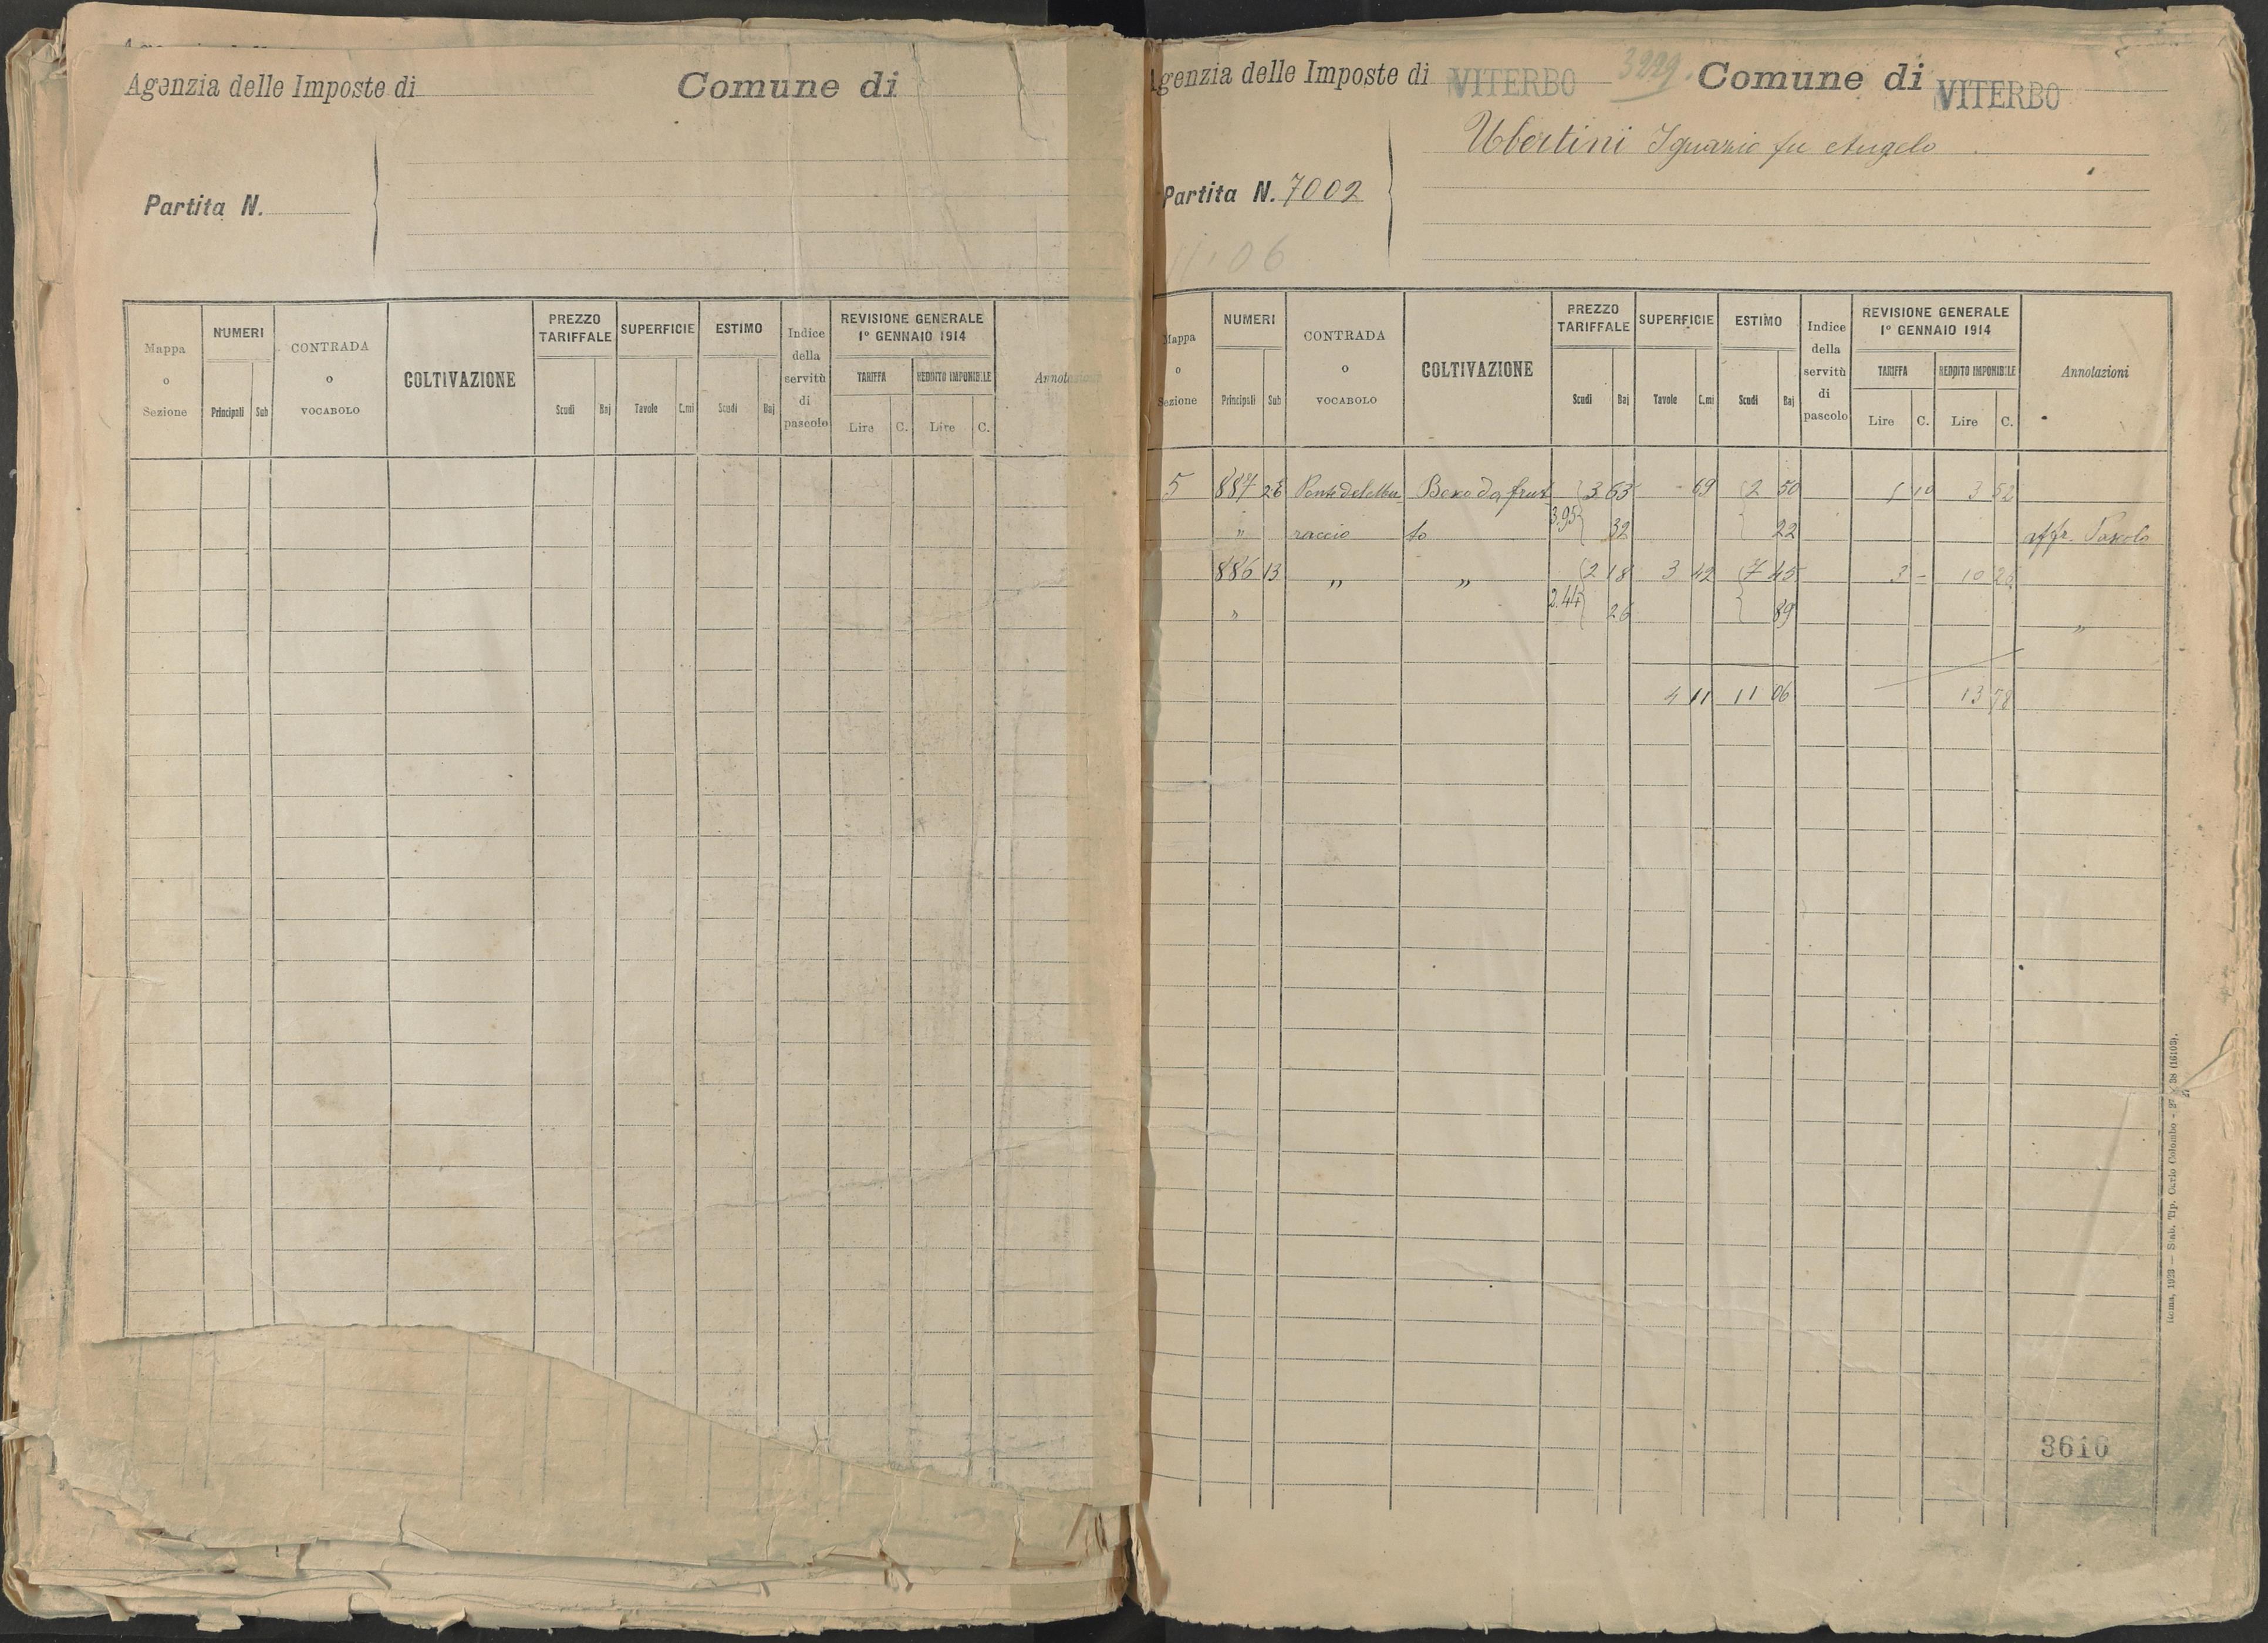 Agenzia delle Imposte di Comune di
Partita N.
Mappa o Sezione NUMERI Principali Sub CONTRADA o VOCABOLO COLTIVAZIONE PREZZO TARIFFALE Scudi Baj SUPERFICIE Tavole C.mi ESTIMO Scudi Baj Indice della servitù di pascolo REVISIONE GENERALE 1° GENNAIO 1914 TARIFFA Lire C. REDDITO IMPONIBILE Lire C.
Agenzia delle Imposte di VITERBO 3229. Comune di VITERBO
Ubertini Ignazio fu Angelo
Partita N. 7002
11.06
Mappa o Sezione NUMERI Principali Sub CONTRADA o VOCABOLO COLTIVAZIONE PREZZO TARIFFALE Scudi Baj SUPERFICIE Tavole C.mi ESTIMO Scudi Baj Indice della servitù di pascolo REVISIONE GENERALE 1° GENNAIO 1914 TARIFFA Lire C. REDDITO IMPONIBILE Lire C. Annotazioni
5 887 26 3 63 - 69 2 50 5 10 3 52
" raccio to 3.95 32 22
886 13 " " 2 18 3 42 7 45 3 - 10 26
" 2.44 26 89 "
4 11 11 06 13 78
Roma, 1923 — Stab. Tip. Carlo Colombo - 27 × 38 (16103).
3616